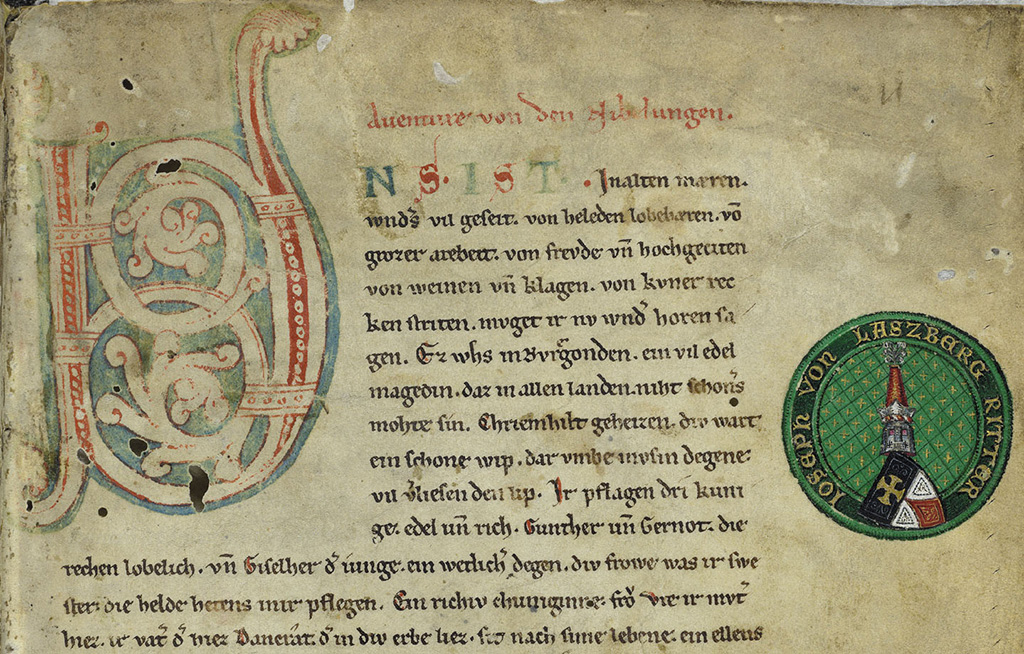 Auenture von den Nibelungen.
UNS. IST. In alten mæren.
wnds vil geseit. von heleden lobebæren. võ
grozer arebeit. von frevde vñ hochgeciten
von weinen vñ klagen. von kvner rec
ken striten. mvget ir nv wndˀ horen sa
gen. Ez whs in Bvrgonden. ein vil edel
magedin. daz in allen landen. niht schonˀs
mohte sin. Chriemhilt geheizen. div wart
ein schone wip. dar vmbe mvsin degene
vil vˀliesen den lip. Ir pflagen dri kuni
ge. edel vñ rich. Gunther vñ Gernot. die
rechen lobelich. vñ Giselher dˀ iunge. ein wetlichˀ degen. div frowe was ir swe
ster. die helde hetens inir pflegen. Ein richiv chuniginne. frŏ Vte ir mvtˀ
hiez. ir vatˀ dˀ hiez Dancrat. dˀ in div erbe liez. sit nach sime lebene. ein ellens
IOSEPH VON LASZBERG RITTER